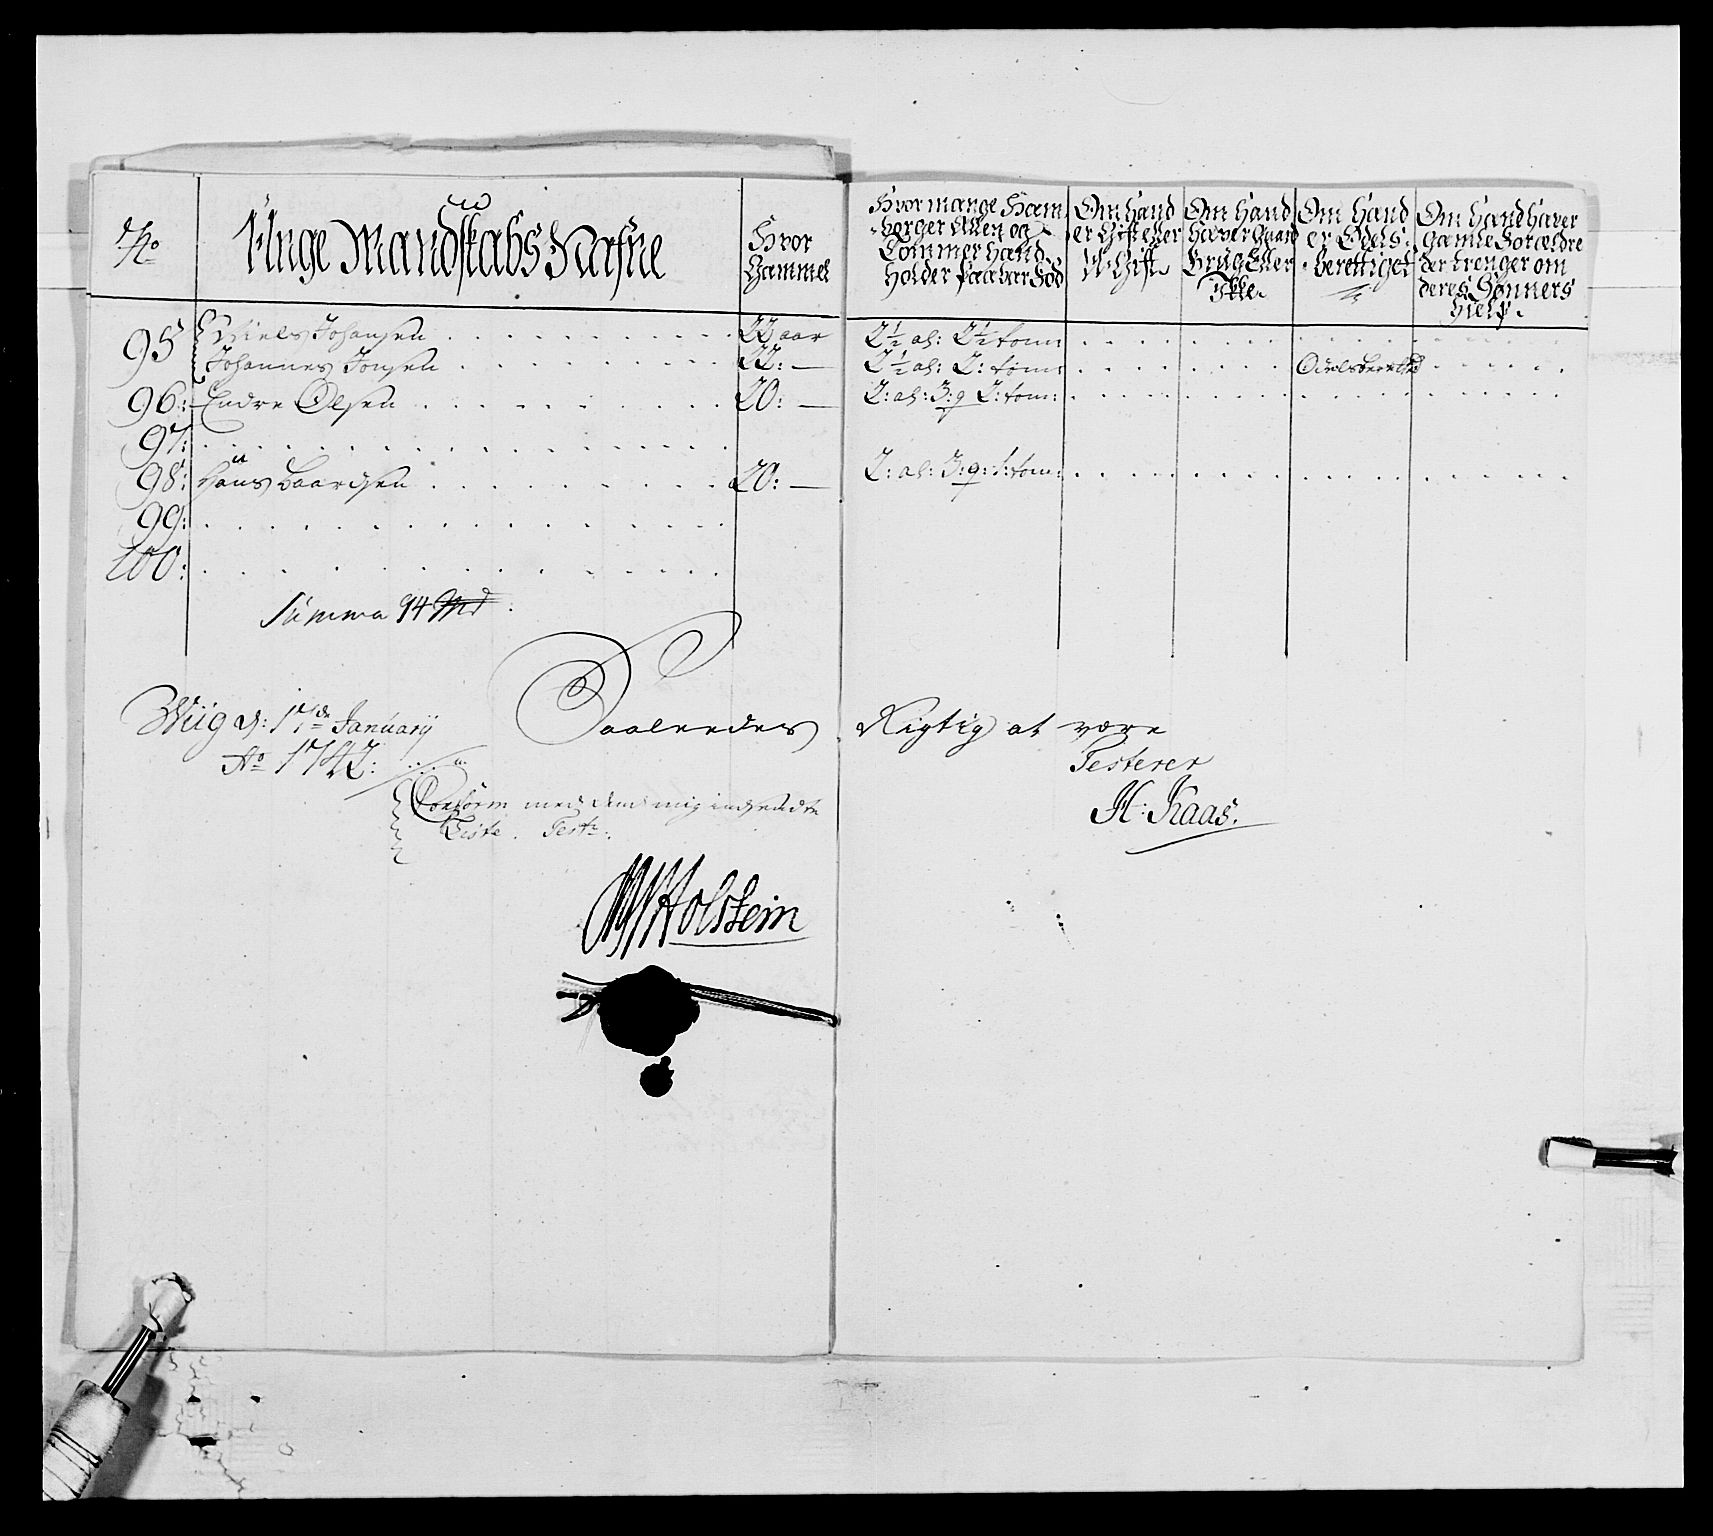 No
Unge Mandskabs Nafne
Hvor Gammel
Hvor mange Ham-
borger Allen og
Tommer hand
Holder Paa bar Fod
Om Hand
er Gift eller
U-Gift
Om Hand
haver Gaard
Brug Eller
Ikke
Om Hand
er Odels-
berettiget
Om Hand haver
Gamle Forældre
der trenger om
deres Sønners
Hielp.
95 Niels Johansen 22 aar 2½ al: 2½ tom
Johannes Jonsen 22: — 2½ al: 2: tom: Odelsberettid
96: Endre Olsen 20: — 2: al: 3: q 2: tom:
97:
98: Hans Baardsen 20: — 2: al: 3: q: 1: tom:
99:
100:
Summa 94 Md
Wiig d: 17de January
Ao 1742:
Saaleedes Rigtig at være
Testerer
H: Kaas.
Conform med dend mig indsendte
Liste. Test:
Holstein